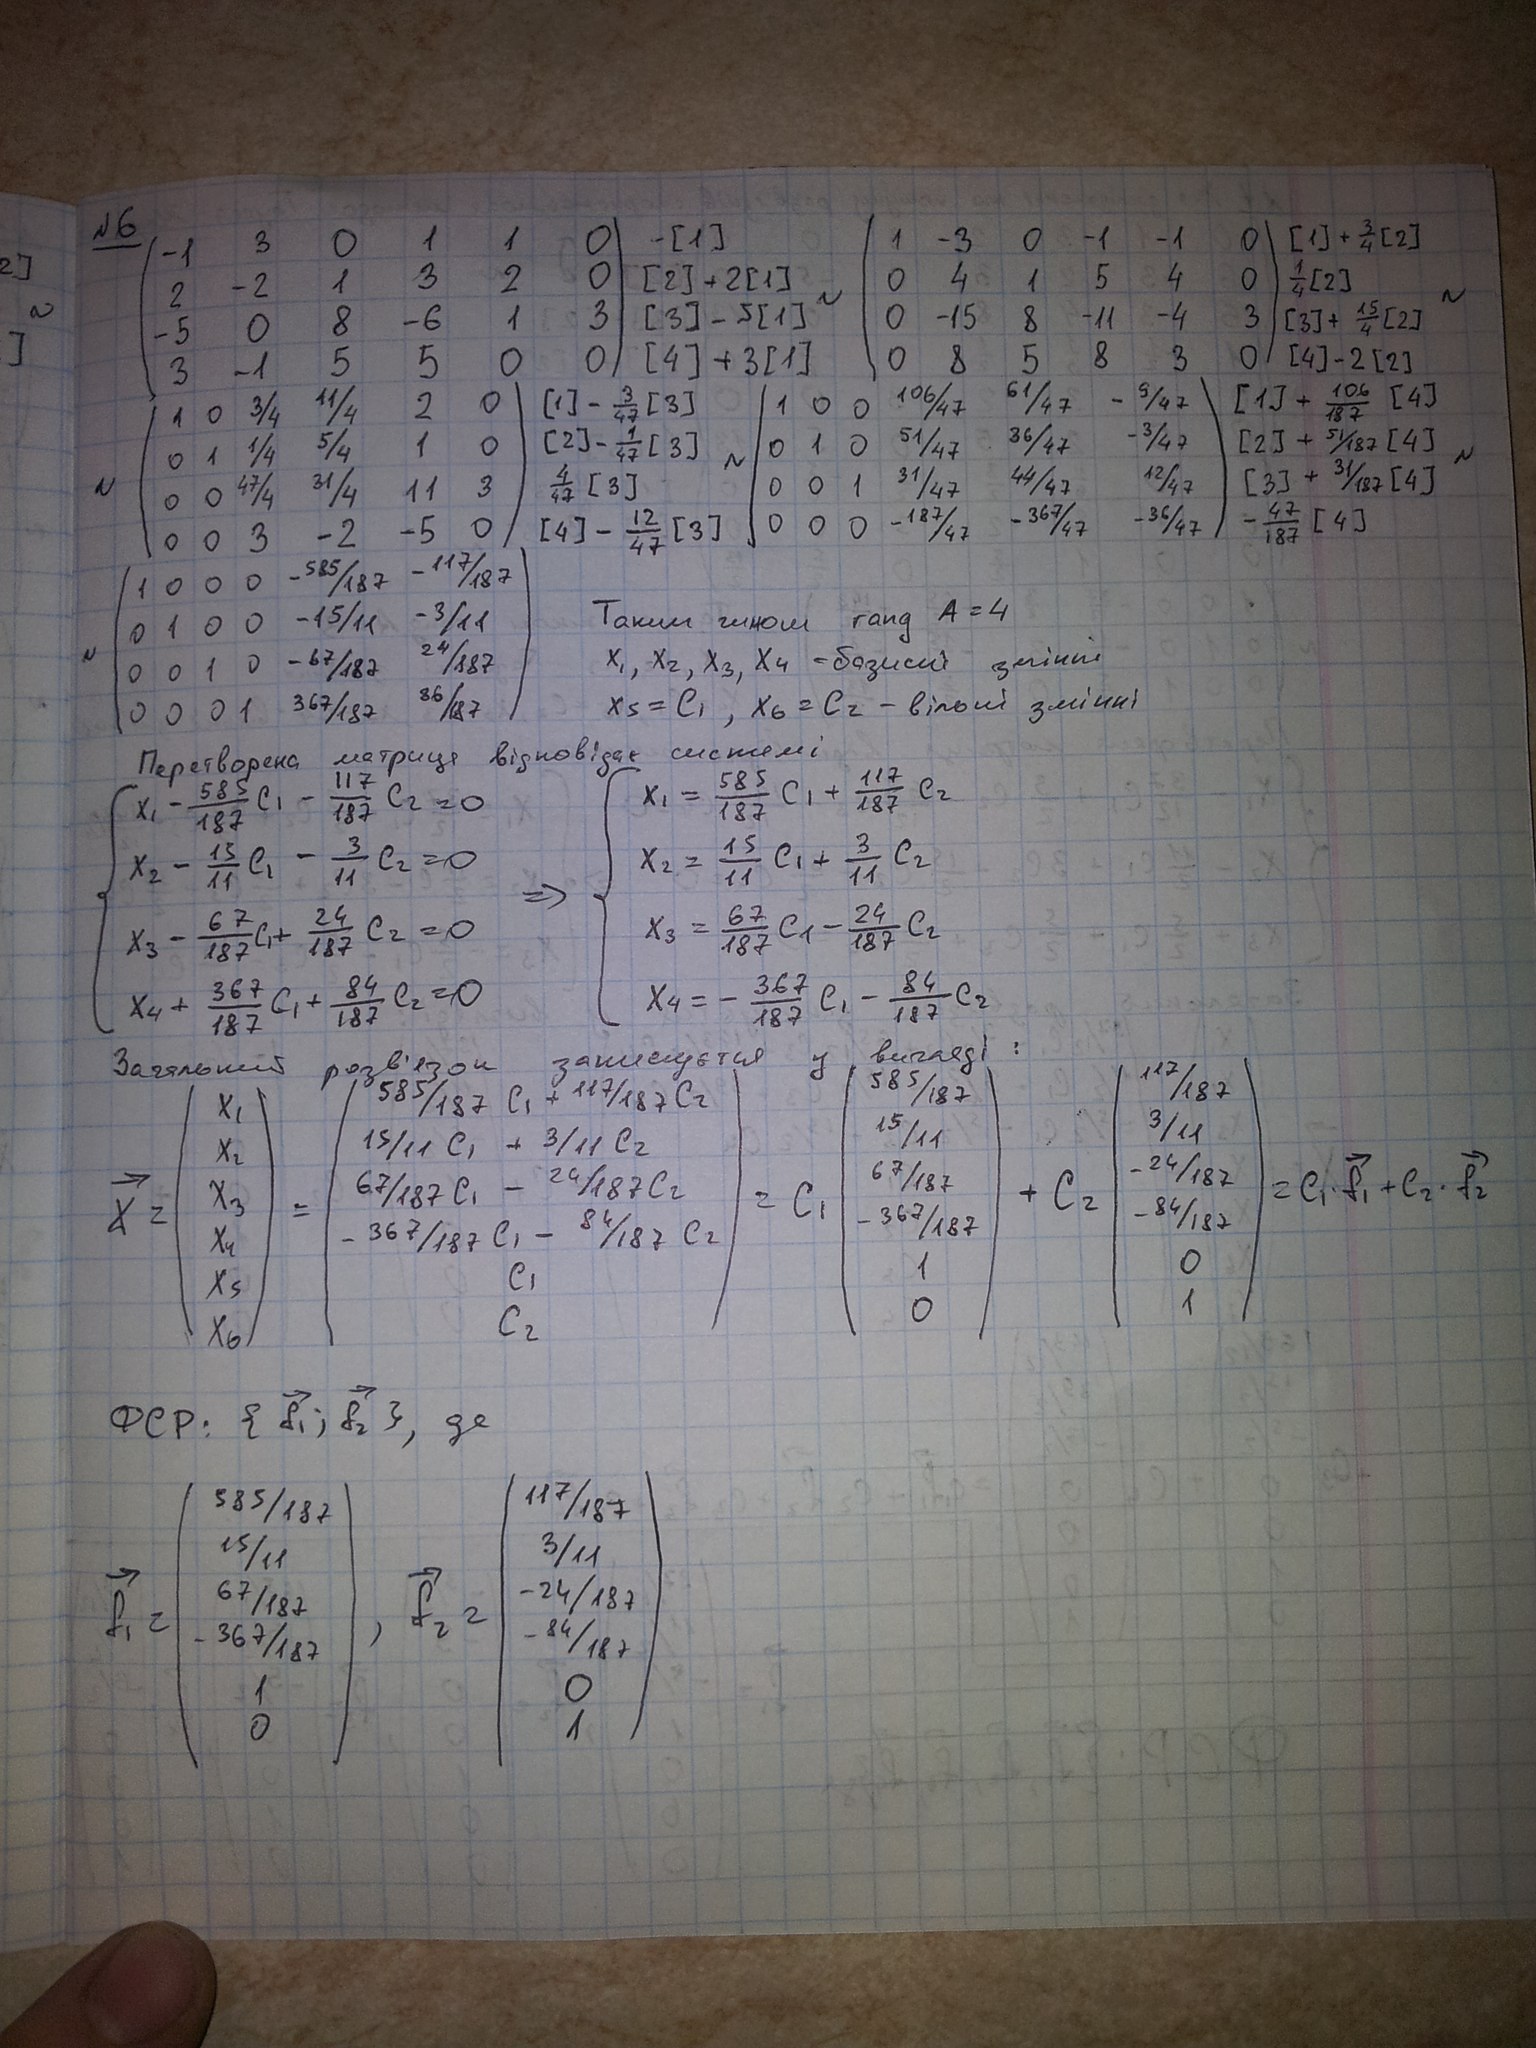 2]
~
]
№6
( -1 3 0 1 1 0 | -[1]
2 -2 1 3 2 0 | [2]+2[1]
-5 0 8 -6 1 3 | [3]-5[1]
3 -1 5 5 0 0 ) [4]+3[1]
~
( 1 -3 0 -1 -1 0 | [1]+3/4[2]
0 4 1 5 4 0 | 1/4[2]
0 -15 8 -11 -4 3 | [3]+15/4[2]
0 8 5 8 3 0 ) [4]-2[2]
~
~ ( 1 0 3/4 11/4 2 0 | [1]-3/47[3]
0 1 1/4 5/4 1 0 | [2]-1/47[3]
0 0 47/4 31/4 11 3 | 4/47[3]
0 0 3 -2 -5 0 ) [4]-12/47[3]
~
( 1 0 0 106/47 61/47 -9/47 ) [1]+106/187[4]
0 1 0 51/47 36/47 -3/47 [2]+51/187[4]
0 0 1 31/47 44/47 12/47 [3]+31/187[4]
0 0 0 -187/47 -367/47 -36/47 ) -47/187[4]
~
~ ( 1 0 0 0 -585/187 -117/187
0 1 0 0 -15/11 -3/11
0 0 1 0 -67/187 24/187
0 0 0 1 367/187 86/187 )
Таким чином rang A=4
x₁, x₂, x₃, x₄ - базисні змінні
x₅=C₁, x₆=C₂ - вільні змінні
Перетворена матриця відповідає системі
{ x₁ - 585/187 C₁ - 117/187 C₂ = 0
x₂ - 15/11 C₁ - 3/11 C₂ = 0
x₃ - 67/187 C₁ + 24/187 C₂ = 0
x₄ + 367/187 C₁ + 84/187 C₂ = 0
=>
{ x₁ = 585/187 C₁ + 117/187 C₂
x₂ = 15/11 C₁ + 3/11 C₂
x₃ = 67/187 C₁ - 24/187 C₂
x₄ = - 367/187 C₁ - 84/187 C₂
Загальний розв'язок записується у вигляді:
X⃗ = ( x₁ x₂ x₃ x₄ x₅ x₆ ) =
( 585/187 C₁ + 117/187 C₂
15/11 C₁ + 3/11 C₂
67/187 C₁ - 24/187 C₂
-367/187 C₁ - 84/187 C₂
C₁
C₂ )
= C₁ ( 585/187 15/11 67/187 -367/187 1 0 )
+ C₂ ( 117/187 3/11 -24/187 -84/187 0 1 )
= C₁·f⃗₁ + C₂·f⃗₂
ФСР: { f⃗₁; f⃗₂ }, де
f⃗₁ = ( 585/187 15/11 67/187 -367/187 1 0 ) ,
f⃗₂ = ( 117/187 3/11 -24/187 -84/187 0 1 )